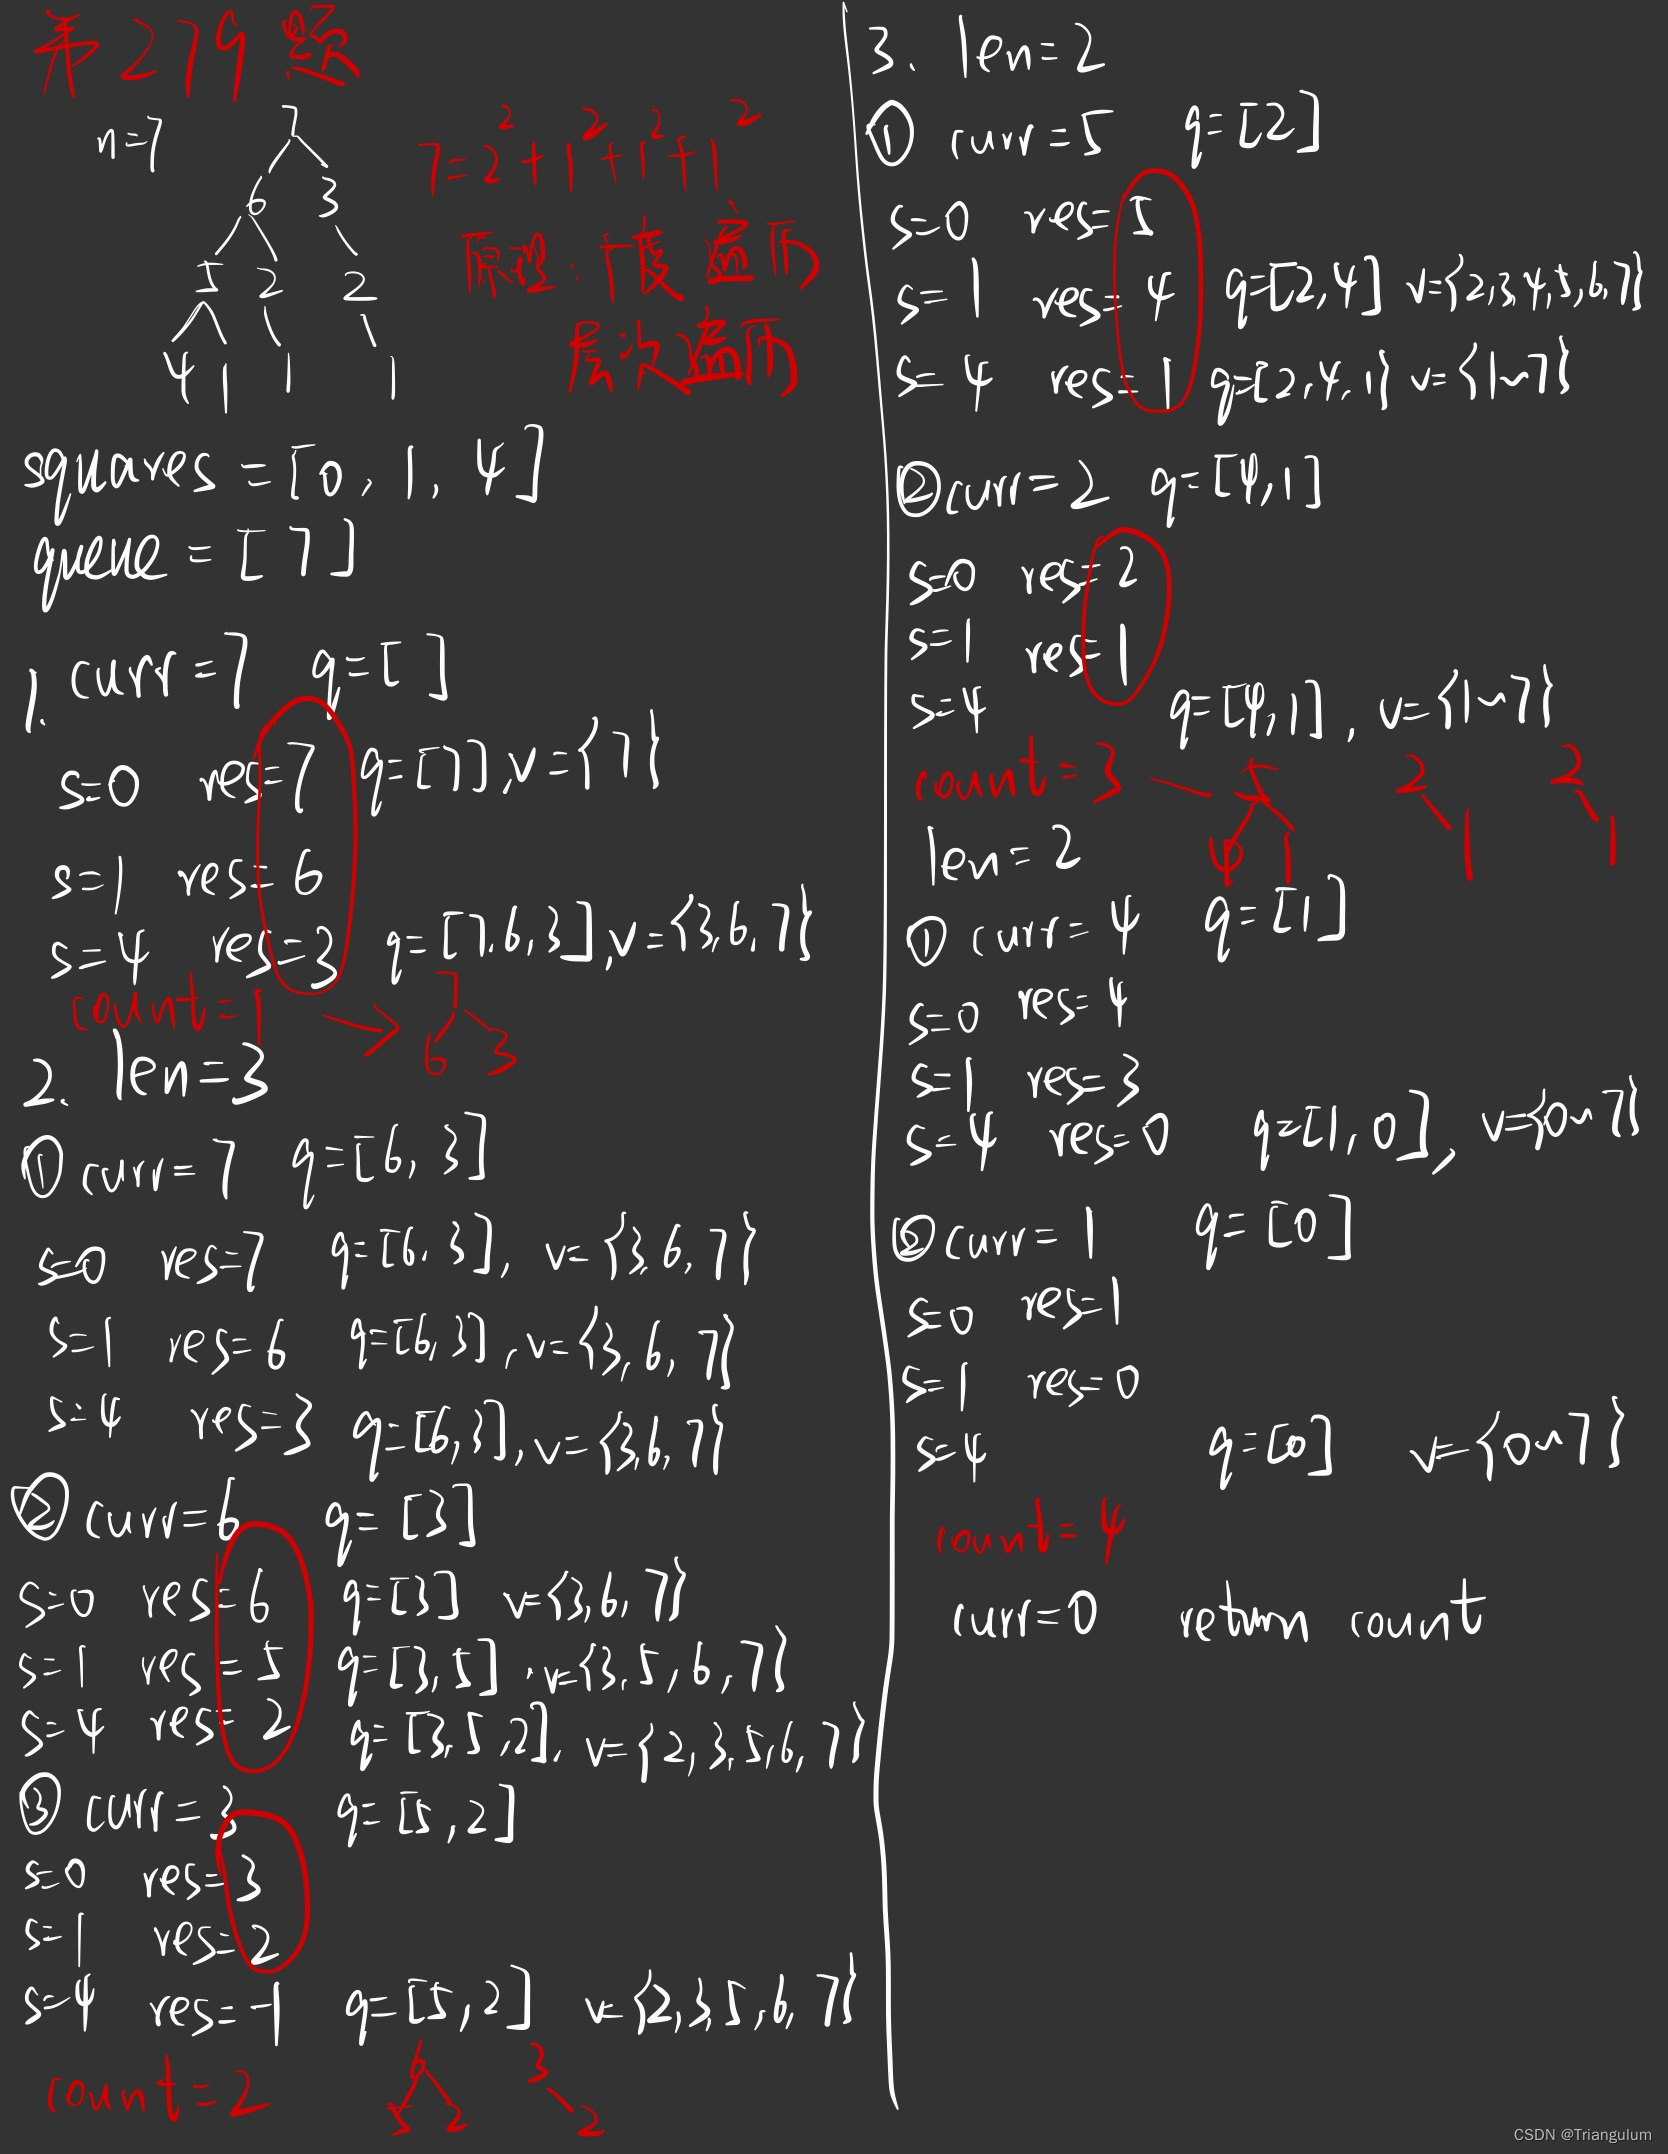 第279题
n=7
7
6 3
5 2 2
4 1 1 1
7=2²+1²+1²+1²
原理:广度遍历
层次遍历
squares=[0,1,4]
queue=[7]
1. curr=7 q=[ ]
s=0 res=7 q=[7],v={7}
s=1 res=6
s=4 res=3 q=[7,6,3],v={3,6,7}
count=1 → 7
6 3
2. len=3
① curr=7 q=[6,3]
s=0 res=7 q=[6,3], v={3,6,7}
s=1 res=6 q=[6,3],v={3,6,7}
s=4 res=3 q=[6,3],v={3,6,7}
② curr=6 q=[3]
s=0 res=6 q=[3] v={3,6,7}
s=1 res=5 q=[3,5] ,v={3,5,6,7}
s=4 res=2 q=[3,5,2], v={2,3,5,6,7}
③ curr=3 q=[5,2]
s=0 res=3
s=1 res=2
s=4 res=-1 q=[5,2] v={2,3,5,6,7}
count=2 6 3
5 2 2
3. len=2
① curr=5 q=[2]
s=0 res=5
s=1 res=4 q=[2,4] v={2,3,4,5,6,7}
s=4 res=1 q=[2,4,1} v={1~7}
② curr=2 q=[4,1]
s=0 res=2
s=1 res=1
s=4 q=[4,1], v={1~7}
count=3 — 5 2 2
4 1 1 1
len=2
① curr=4 q=[1]
s=0 res=4
s=1 res=3
s=4 res=0 q=[1,0], v={0~7}
② curr=1 q=[0]
s=0 res=1
s=1 res=0
s=4 q=[0] v={0~7}
count=4
curr=0 return count
CSDN @Triangulum